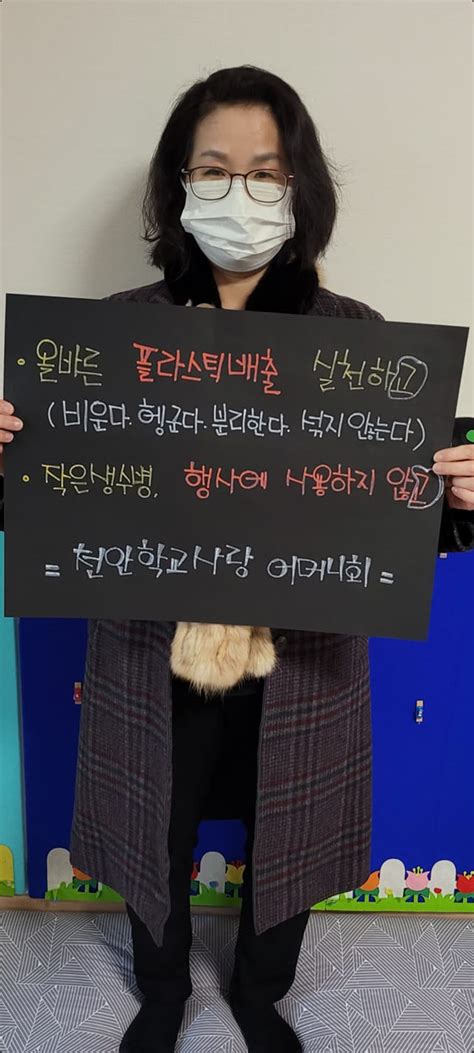 • 올바른 플라스틱배출 실천하고
(비운다. 헹군다. 분리한다. 섞지 않는다)
• 작은생수병, 행사에 사용하지 않고
= 천안학교사랑 어머니회 =